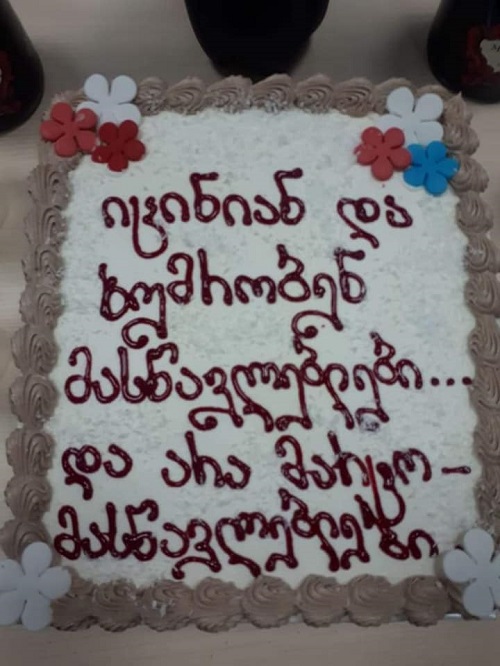 იცინიან და
ხუმრობენ
მასწავლებლები...
და არა მარტო-
მასწავლებლები